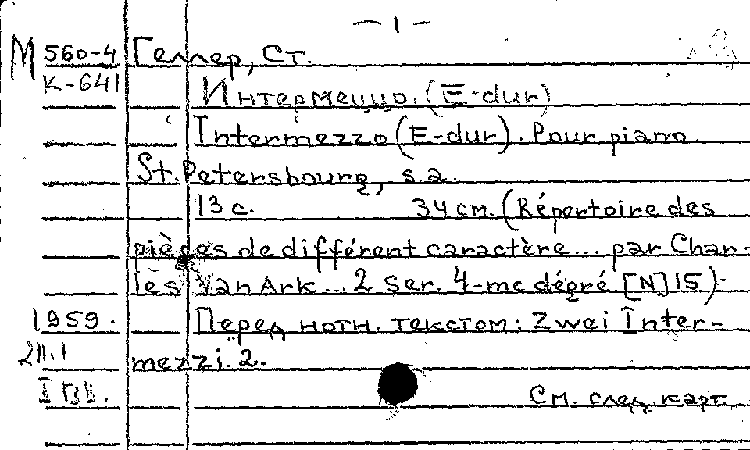 — 1 —
М 560-4 Геллер, Ст.
К-641
Интермеццо. (E-dur)
Intermezzo (E-dur). Pour piano
St. Petersbourg, s.a.
13 с. 34 см. (Répertoire des
pièces de différent caractère... par Char-
lès Van Ark... 2 Ser. 4-me dégré [N] 15)
1959. Перед нотн. текстом: Zwei Inter-
mezzi. 2.
См. след. карт.